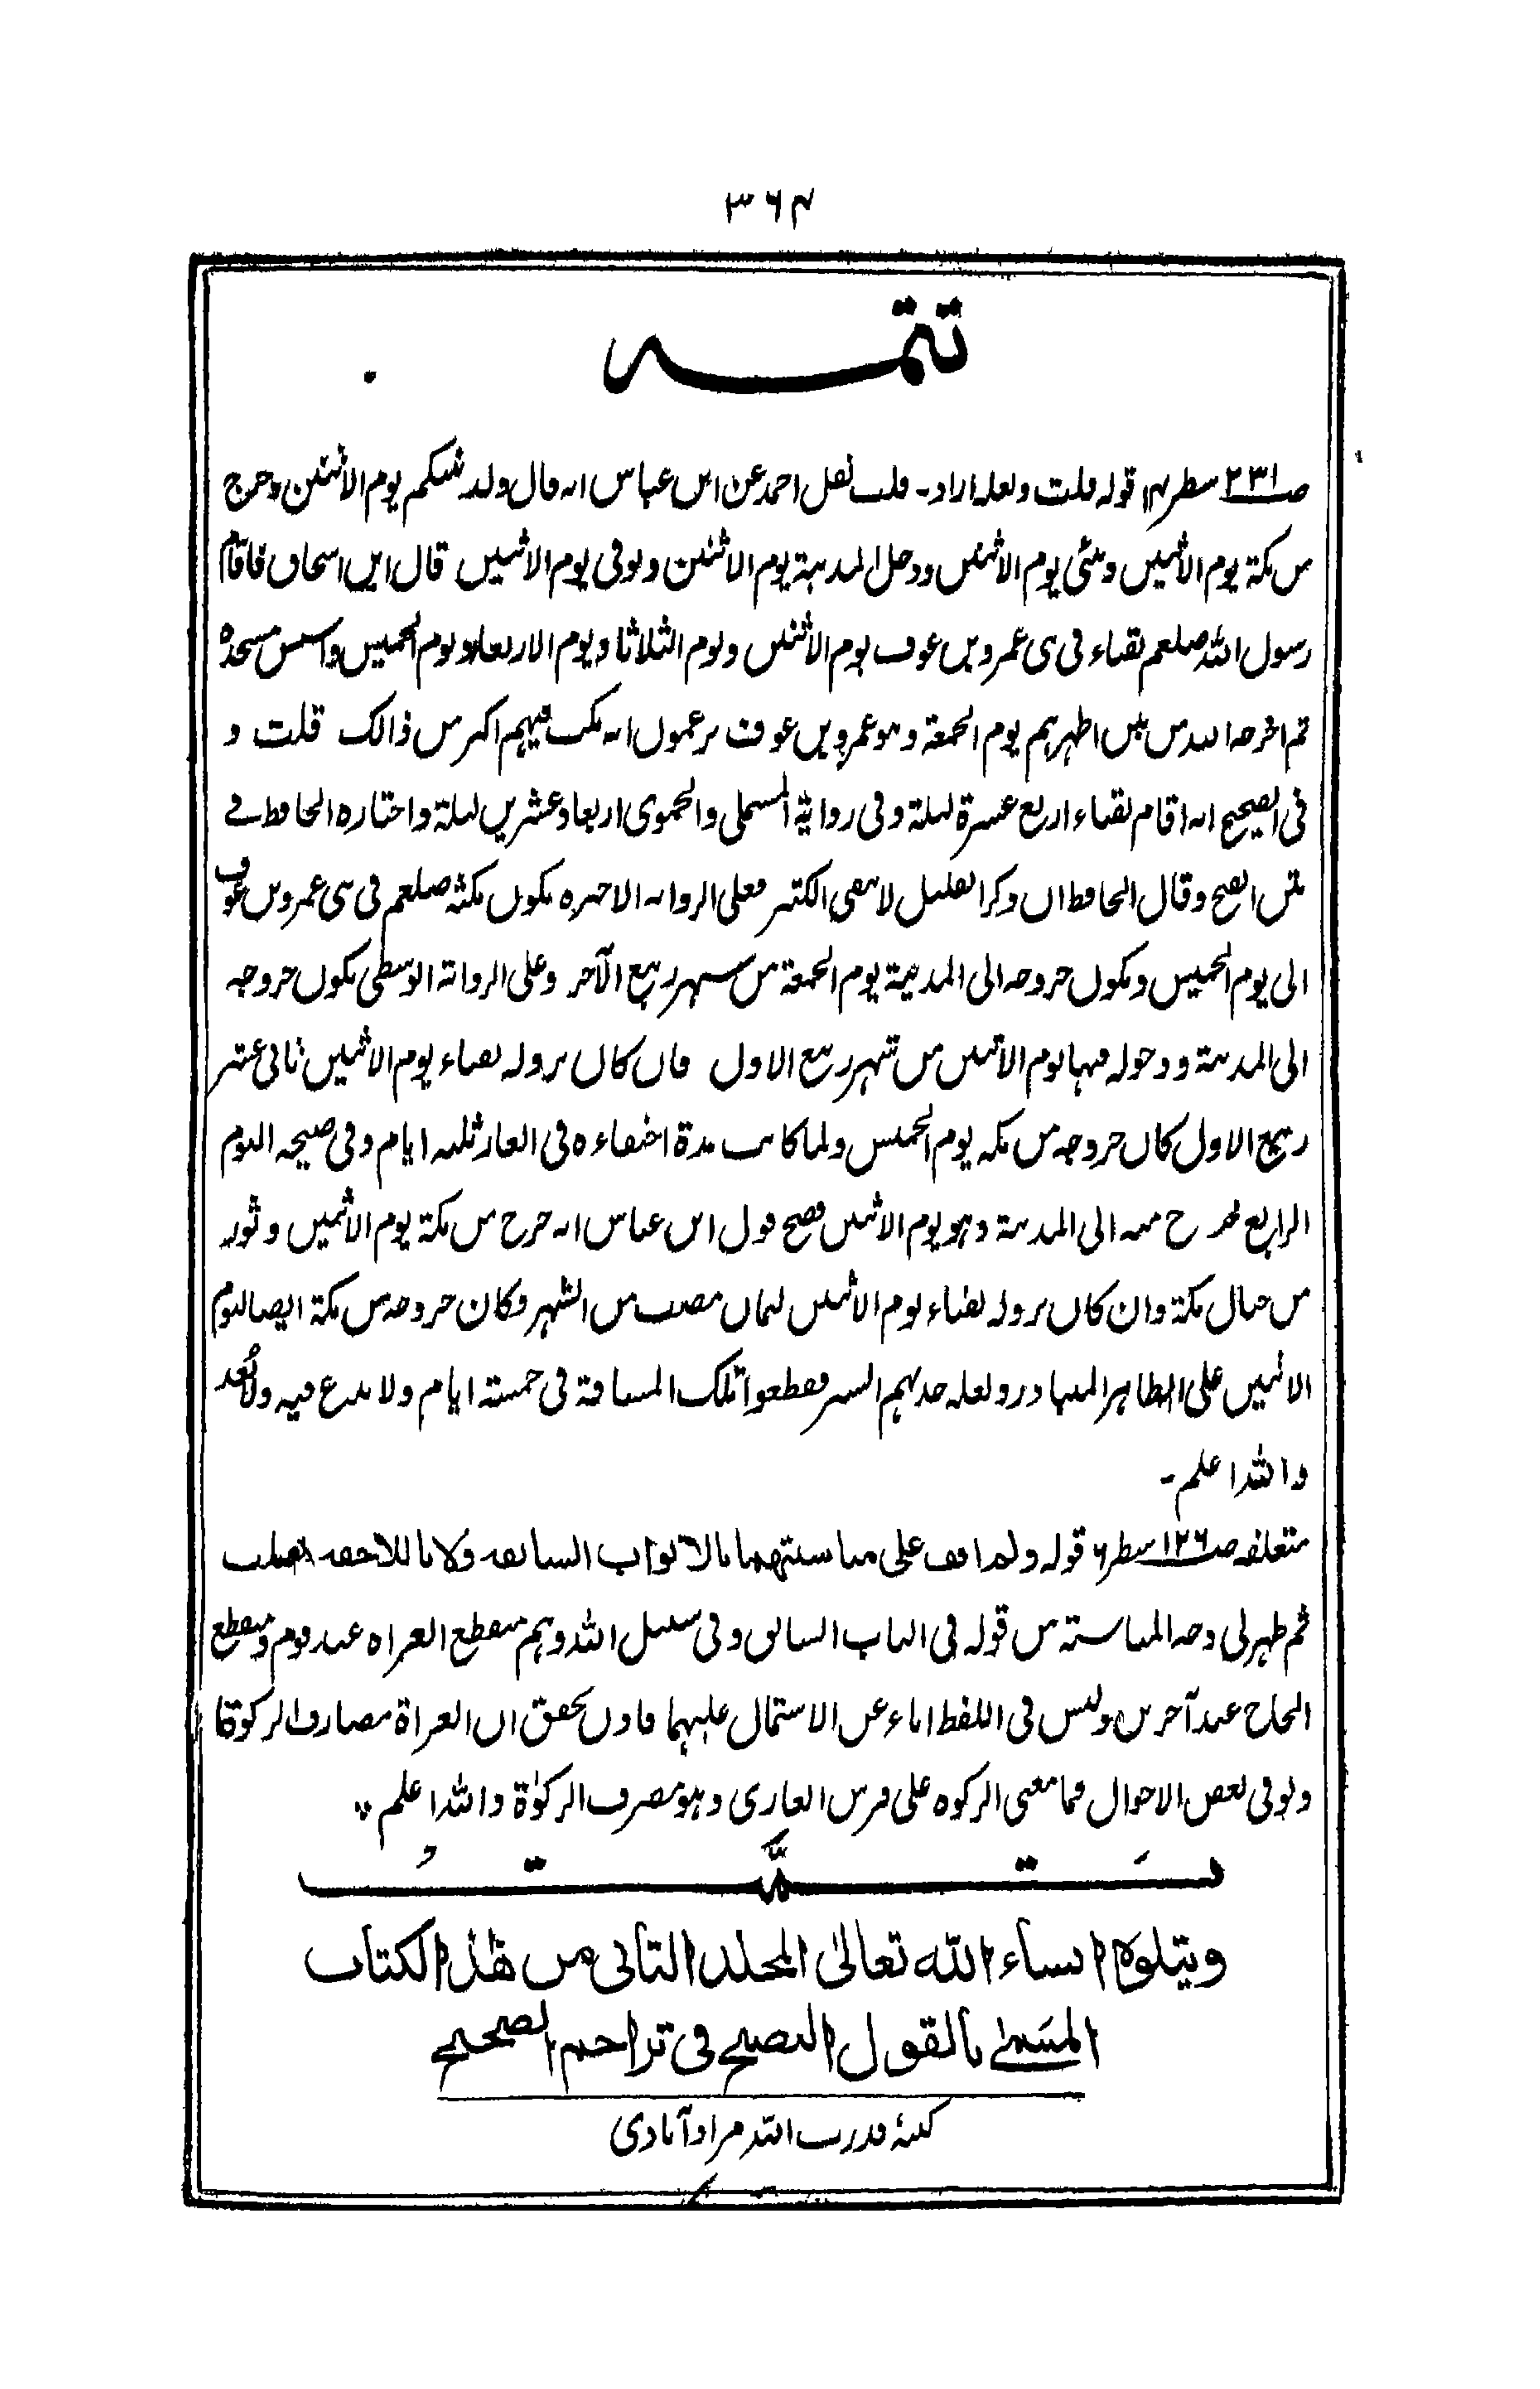 ۳۶۴
تتمہ
صـ۲۳۱ سطر۱۴ قوله قلت ولعله اراد۔ قلت نقل احمد عن ابن عباس انه قال ولد نبيكم يوم الاثنين وخرج
من مكة يوم الاثنين ونبئ يوم الاثنين ودخل المدينة يوم الاثنين وتوفى يوم الاثنين قال ابن اسحاق فاقام
رسول الله صلعم بقباء فى بنى عمرو بن عوف يوم الاثنين ويوم الثلاثا ويوم الاربعاء ويوم الخميس واسس مسجده
ثم اخرجه الله من بين اظهرهم يوم الجمعة وبنو عمرو بن عوف يزعمون انه مكث فيهم اكثر من ذالك قلت و
فى الصحيح انه اقام بقباء اربع عشرة ليلة وفى رواية المستملى والحموى اربعا وعشرين ليلة واختاره الحافظ فى
وقال الحافظ ان ذكر القليل لا ينفى الكثير فعلى الرواية الاخيره يكون مكثه صلعم فى بنى عمرو بن عوف
الى يوم الخميس ويكون خروجه الى المدينة يوم الجمعة من شهر ربيع الآخر وعلى الرواية الوسطى يكون خروجه
الى المدينة ودخوله فيها يوم الاثنين من شهر ربيع الاول فان كان نزوله بقباء يوم الاثنين ثانى عشر
ربيع الاول كان خروجه من مكه يوم الخميس ولما كانت مدة اختفاءه فى الغار ثلثه ايام وفى صبيحه اليوم
الرابع خرج منه الى المدينة وهو يوم الاثنين فصح قول ابن عباس انه خرج من مكة يوم الاثنين وثور
من جبال مكة وان كان نزوله بقباء يوم الاثنين لثمان مضت من الشهر وكان خروجه من مكة ايضا ليوم
الاثنين على الظاهر المتبادر ولعله جد بهم السير فقطعوا تلك المسافة فى خمسة ايام ولا بدع فيه ولا بُعد
والله اعلم۔
متعلقه صـ۱۲۶ سطر۶ قوله ولم اقف على مناسبتهما بالابواب السابقه ولا باللاحقه قلت
ثم ظهر لى وجه المناسبة من قوله فى الباب السابق وفى سبيل الله وهم منقطع الغزاه عند قوم ومنقطع
الحاج عند آخرين وليس فى اللفظ اباء عن الاشتمال عليهما فاذن تحقق ان الغزاة مصارف الزكوة
ولو فى بعض الاحوال فما معنى الزكوه على فرس الغازى وهو مصرف الزكوٰة والله اعلم
تَمَّتْ
ويتلوه انشاء الله تعالىٰ المجلد الثانى من هٰذا الكتاب
المسَمّٰى بالقول النصيح فى تراجم الصحيح
كتبهٔ قدرت الله مرادآبادى